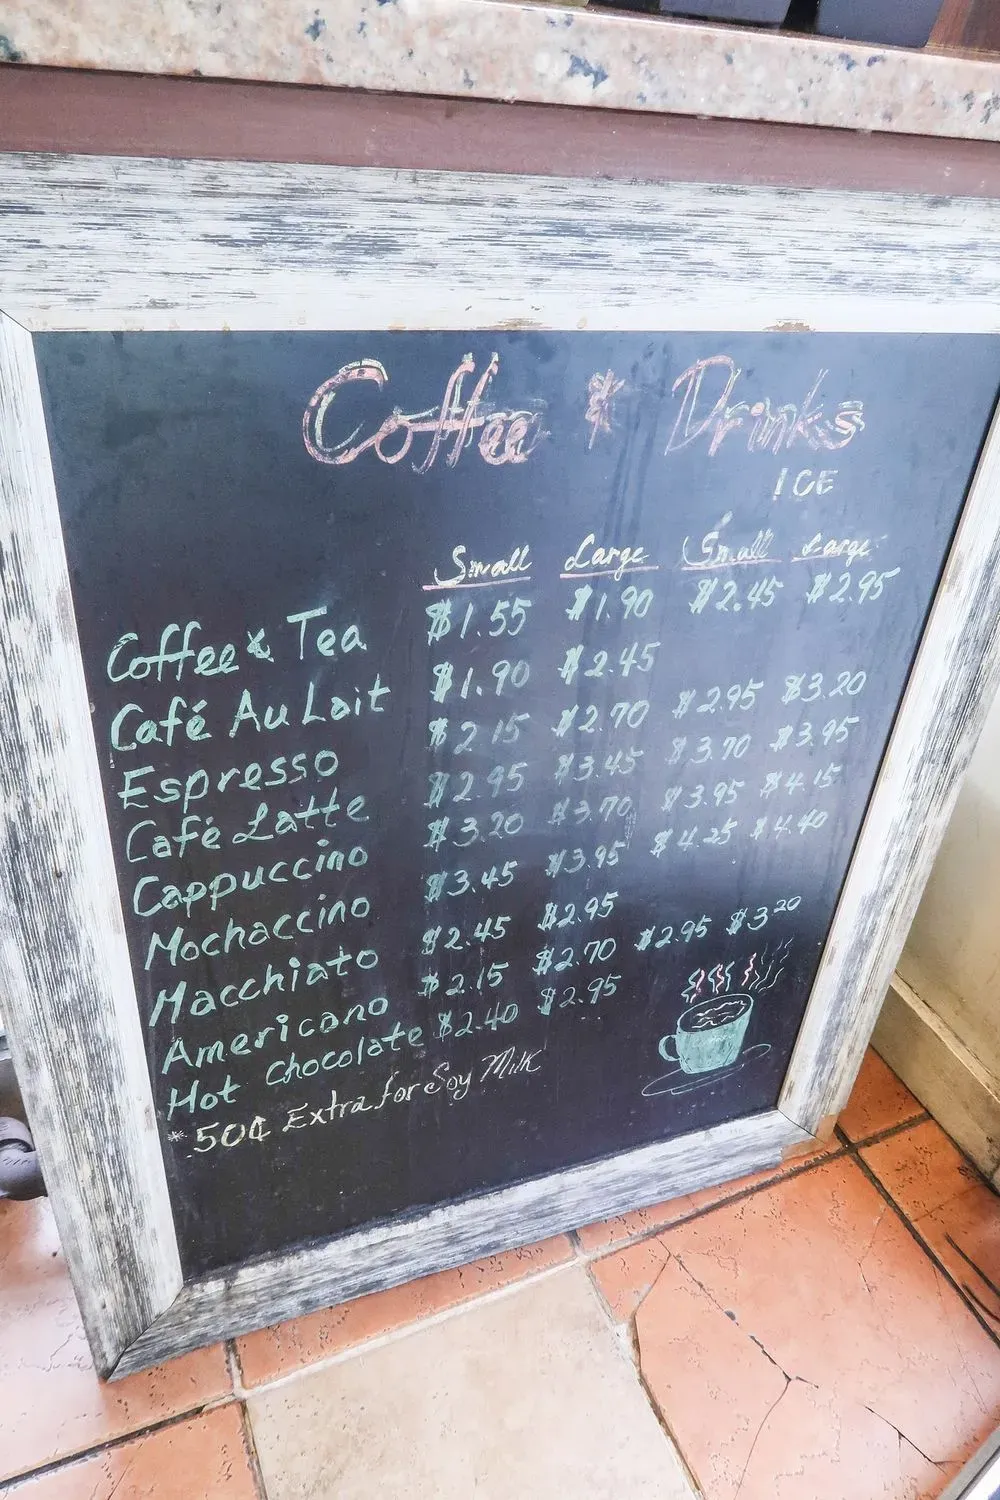 Coffee & Drinks
ICE
Small Large Small Large
Coffee & Tea $1.55 $1.90 $2.45 $2.95
Café Au Lait $1.90 $2.45
Espresso $2.15 $2.70 $2.95 $3.20
Café Latte $2.95 $3.45 $3.70 $3.95
Cappuccino $3.20 $3.70 $3.95 $4.15
Mochaccino $3.45 $3.95 $4.25 $4.40
Macchiato $2.45 $2.95
Americano $2.15 $2.70 $2.95 $3.20
Hot chocolate $2.40 $2.95
* .50¢ Extra for Soy Milk